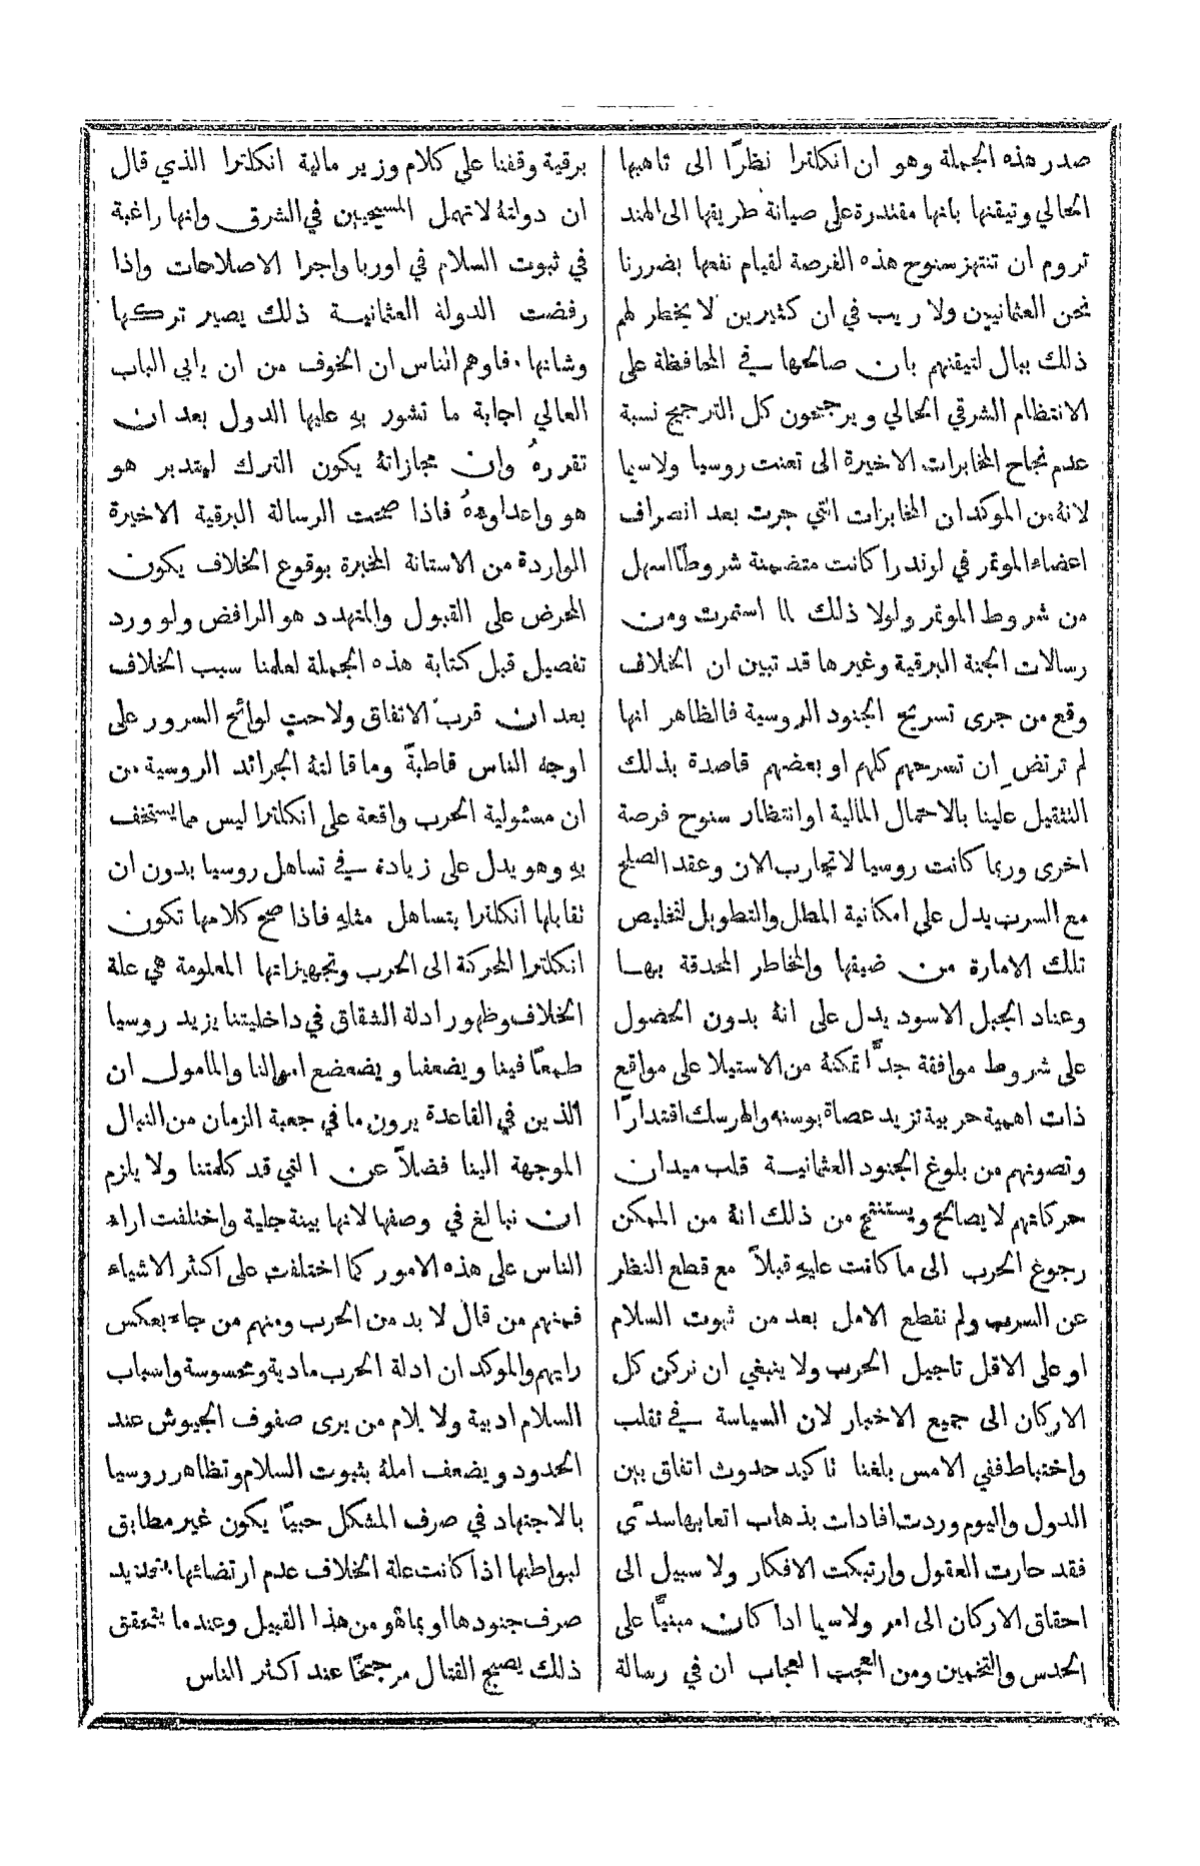 صدر هذه الجملة وهو ان انكلترا نظرًا الى تاهبها
الحالي وتيقنها بانها مقتدرة على صيانة طريقها الى الهند
تروم ان تنتهز سنوح هذه الفرصة لقيام نفعها بضررنا
نحن العثمانيين ولا ريب في ان كثيرين لا يخطر لهم
ذلك ببال لتيقنهم بان صالحها في المحافظة على
الانتظام الشرقي الحالي ويرجحون كل الترجيح نسبة
عدم نجاح المخابرات الاخيرة الى تعنت روسيا ولاسيما
لانهُ من الموكد ان المخابرات التي جرت بعد انصراف
اعضاء الموتمر في لوندرا كانت متضمنة شروطًا اسهل
من شروط الموتمر ولولا ذلك لما استمرت ومن
رسالات الجنة البرقية وغيرها قد تبين ان الخلاف
وقع من جرى تسريح الجنود الروسية فالظاهر انها
لم ترتضِ ان تسرحهم كلهم او بعضهم قاصدة بذلك
التثقيل علينا بالاحتمال المالية او انتظار سنوح فرصة
اخرى وربما كانت روسيا لا تحارب الان وعقد الصلح
مع السرب يدل على امكانية المطل والتطويل لتخليص
تلك الامارة من ضيقها والمخاطر المحدقة بها
وعناد الجبل الاسود يدل على انهُ بدون الحصول
على شروط موافقة جدًّا تمكنهُ من الاستيلا على مواقع
ذات اهمية حربية تزيد عصاة بوسنه والهرسك اقتدارًا
وتصونهم من بلوغ الجنود العثمانية قلب ميدان
حركاتهم لا يصالح ويستنتج من ذلك انهُ من الممكن
رجوع الحرب الى ما كانت عليهِ قبلاً مع قطع النظر
عن السرب ولم نقطع الامل بعد من ثبوت السلام
او على الاقل تاجيل الحرب ولا ينبغي ان نركن كل
الاركان الى جميع الاخبار لان السياسة في تقلب
واختباط ففي الامس بلغنا تاكيد حدوث اتفاق بين
الدول واليوم وردت افادات بذهاب اتعابها سدًى
فقد حارت العقول وارتبكت الافكار ولا سبيل الى
احقاق الاركان الى امر ولاسيما اذا كان مبنيًّا على
الحدس والتخمين ومن العجب العجاب ان في رسالة
برقية وقفنا على كلام وزير مالية انكلترا الذي قال
ان دولتهُ لا تهمل المسيحيين في الشرق وانها راغبة
في ثبوت السلام في اوربا واجرا الاصلاحات واذا
رفضت الدولة العثمانية ذلك يصير تركها
وشانها. فاوهم الناس ان الخوف من ان يابي الباب
العالي اجابة ما تشور بهِ عليها الدول بعد ان
تقررهُ وان مجازاتهُ يكون الترك ليتدبر هو
هو واعداوهُ فاذا صحت الرسالة البرقية الاخيرة
الواردة من الاستانة المخبرة بوقوع الخلاف يكون
المحرض على القبول والمتهدد هو الرافض ولو ورد
تفصيل قبل كتابة هذه الجملة لعلمنا سبب الخلاف
بعد ان قرب الاتفاق ولاحت لوائح السرور على
اوجه الناس قاطبةً وما قالتهُ الجرائد الروسية من
ان مسئولية الحرب واقعة على انكلترا ليس مما يستخف
بهِ وهو يدل على زيادة في تساهل روسيا بدون ان
تقابلها انكلترا بتساهل مثلهِ فاذا صح كلامها تكون
انكلترا المحركة الى الحرب وتجهيزاتها المعلومة هي علة
الخلاف وظهور ادلة الشقاق في داخليتنا يزيد روسيا
طمعًا فينا ويضعفنا ويضعضع اموالنا والمامول ان
الذين في القاعدة يرون ما في جعبة الزمان من النبال
الموجهة الينا فضلاً عن التي قد كلمتنا ولا يلزم
ان نبالغ في وصفها لانها بينة جلية واختلفت اراء
الناس على هذه الامور كما اختلفت على اكثر الاشياء
فمنهم من قال لا بد من الحرب ومنهم من جاء بعكس
رايهم والموكد ان ادلة الحرب مادية ومحسوسة واسباب
السلام ادبية ولا يلام من يرى صفوف الجيوش عند
الحدود ويضعف املهُ بثبوت السلام وتظاهر روسيا
بالاجتهاد في صرف المشكل حبيًّا يكون غير مطابق
لبواطنها اذا كانت علة الخلاف عدم ارتضائها بتحديد
صرف جنودها او بما هو من هذا القبيل وعندما يتحقق
ذلك يصبح القتال مرجحًا عند اكثر الناس